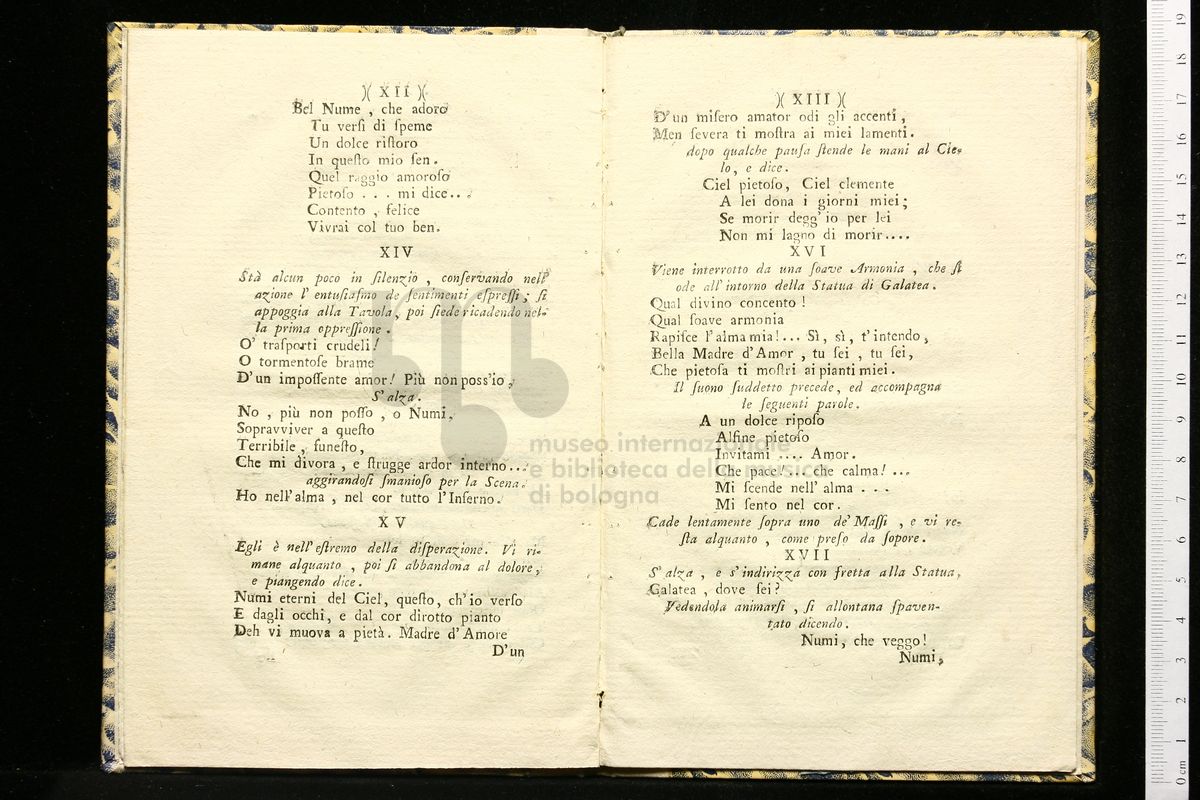 )( XII )(
Bel Nume , che adoro
Tu verſi di ſpeme
Un dolce riſtoro
In queſto mio ſen.
Quel raggio amoroſo
Pietoſo . . . mi dice...
Contento , felice
Vivrai col tuo ben.
XIV
Stà alcun poco in ſilenzio , conſervando nell'
azione l' entuſiaſmo de ſentimenti eſpreſſi ; ſi
appoggia alla Tavola, poi ſiede ricadendo nel-
la prima oppreſſione .
O' traſporti crudeli!
O tormentoſe brame
D'un impoſſente amor! Più non poss'io,
S'alza.
No , più non poſſo , o Numi,
Sopravviver a queſto
Terribile, funeſto,
Che mi divora , e ſtrugge ardor interno...
aggirandoſi ſmanioſo per la Scena.
Ho nell'alma , nel cor tutto l'Inferno.
XV
Egli è nell'eſtremo della diſperazione. Vi ri-
mane alquanto , poi ſi abbandona al dolore,
e piangendo dice .
Numi eterni del Ciel, queſto, ch'io verſo
E dagli occhi, e dal cor dirotto pianto
Deh vi muova a pietà. Madre d'Amore
D'un
)( XIII )(
D'un miſero amator odi gli accenti,
Men ſevera ti moſtra ai miei lamenti.
dopo qualche pauſa ſtende le mani al Cie-
lo, e dice.
Ciel pietoſo, Ciel clemente
A lei dona i giorni miei;
Se morir degg'io per lei
Non mi lagno di morir....
XVI
Viene interrotto da una ſoave Armonia , che ſi
ode all'intorno della Statua di Galatea.
Qual divino concento !
Qual ſoave armonia
Rapiſce l'alma mia!... Sì, sì, t'intendo,
Bella Madre d'Amor , tu ſei , tu ſei,
Che pietoſa ti moſtri ai pianti miei.
Il ſuono ſuddetto precede, ed accompagna
le ſeguenti parole.
A un dolce ripoſo
Alfine pietoſo
Invitami .... Amor.
Che pace!... che calma! ...
Mi ſcende nell' alma . . .
Mi ſento nel cor.
Cade lentamente ſopra uno de' Maſſi , e vi re-
ſta alquanto , come preſo da ſopore.
XVII
S'alza , e s'indirizza con fretta alla Statua,
Galatea , dove ſei?
Vedendola animarſi , ſi allontana ſpaven-
tato dicendo.
Numi, che veggo!
Numi,
museo internazionale
e biblioteca della musica
di bologna
0 cm 1 2 3 4 5 6 7 8 9 10 11 12 13 14 15 16 17 18 19